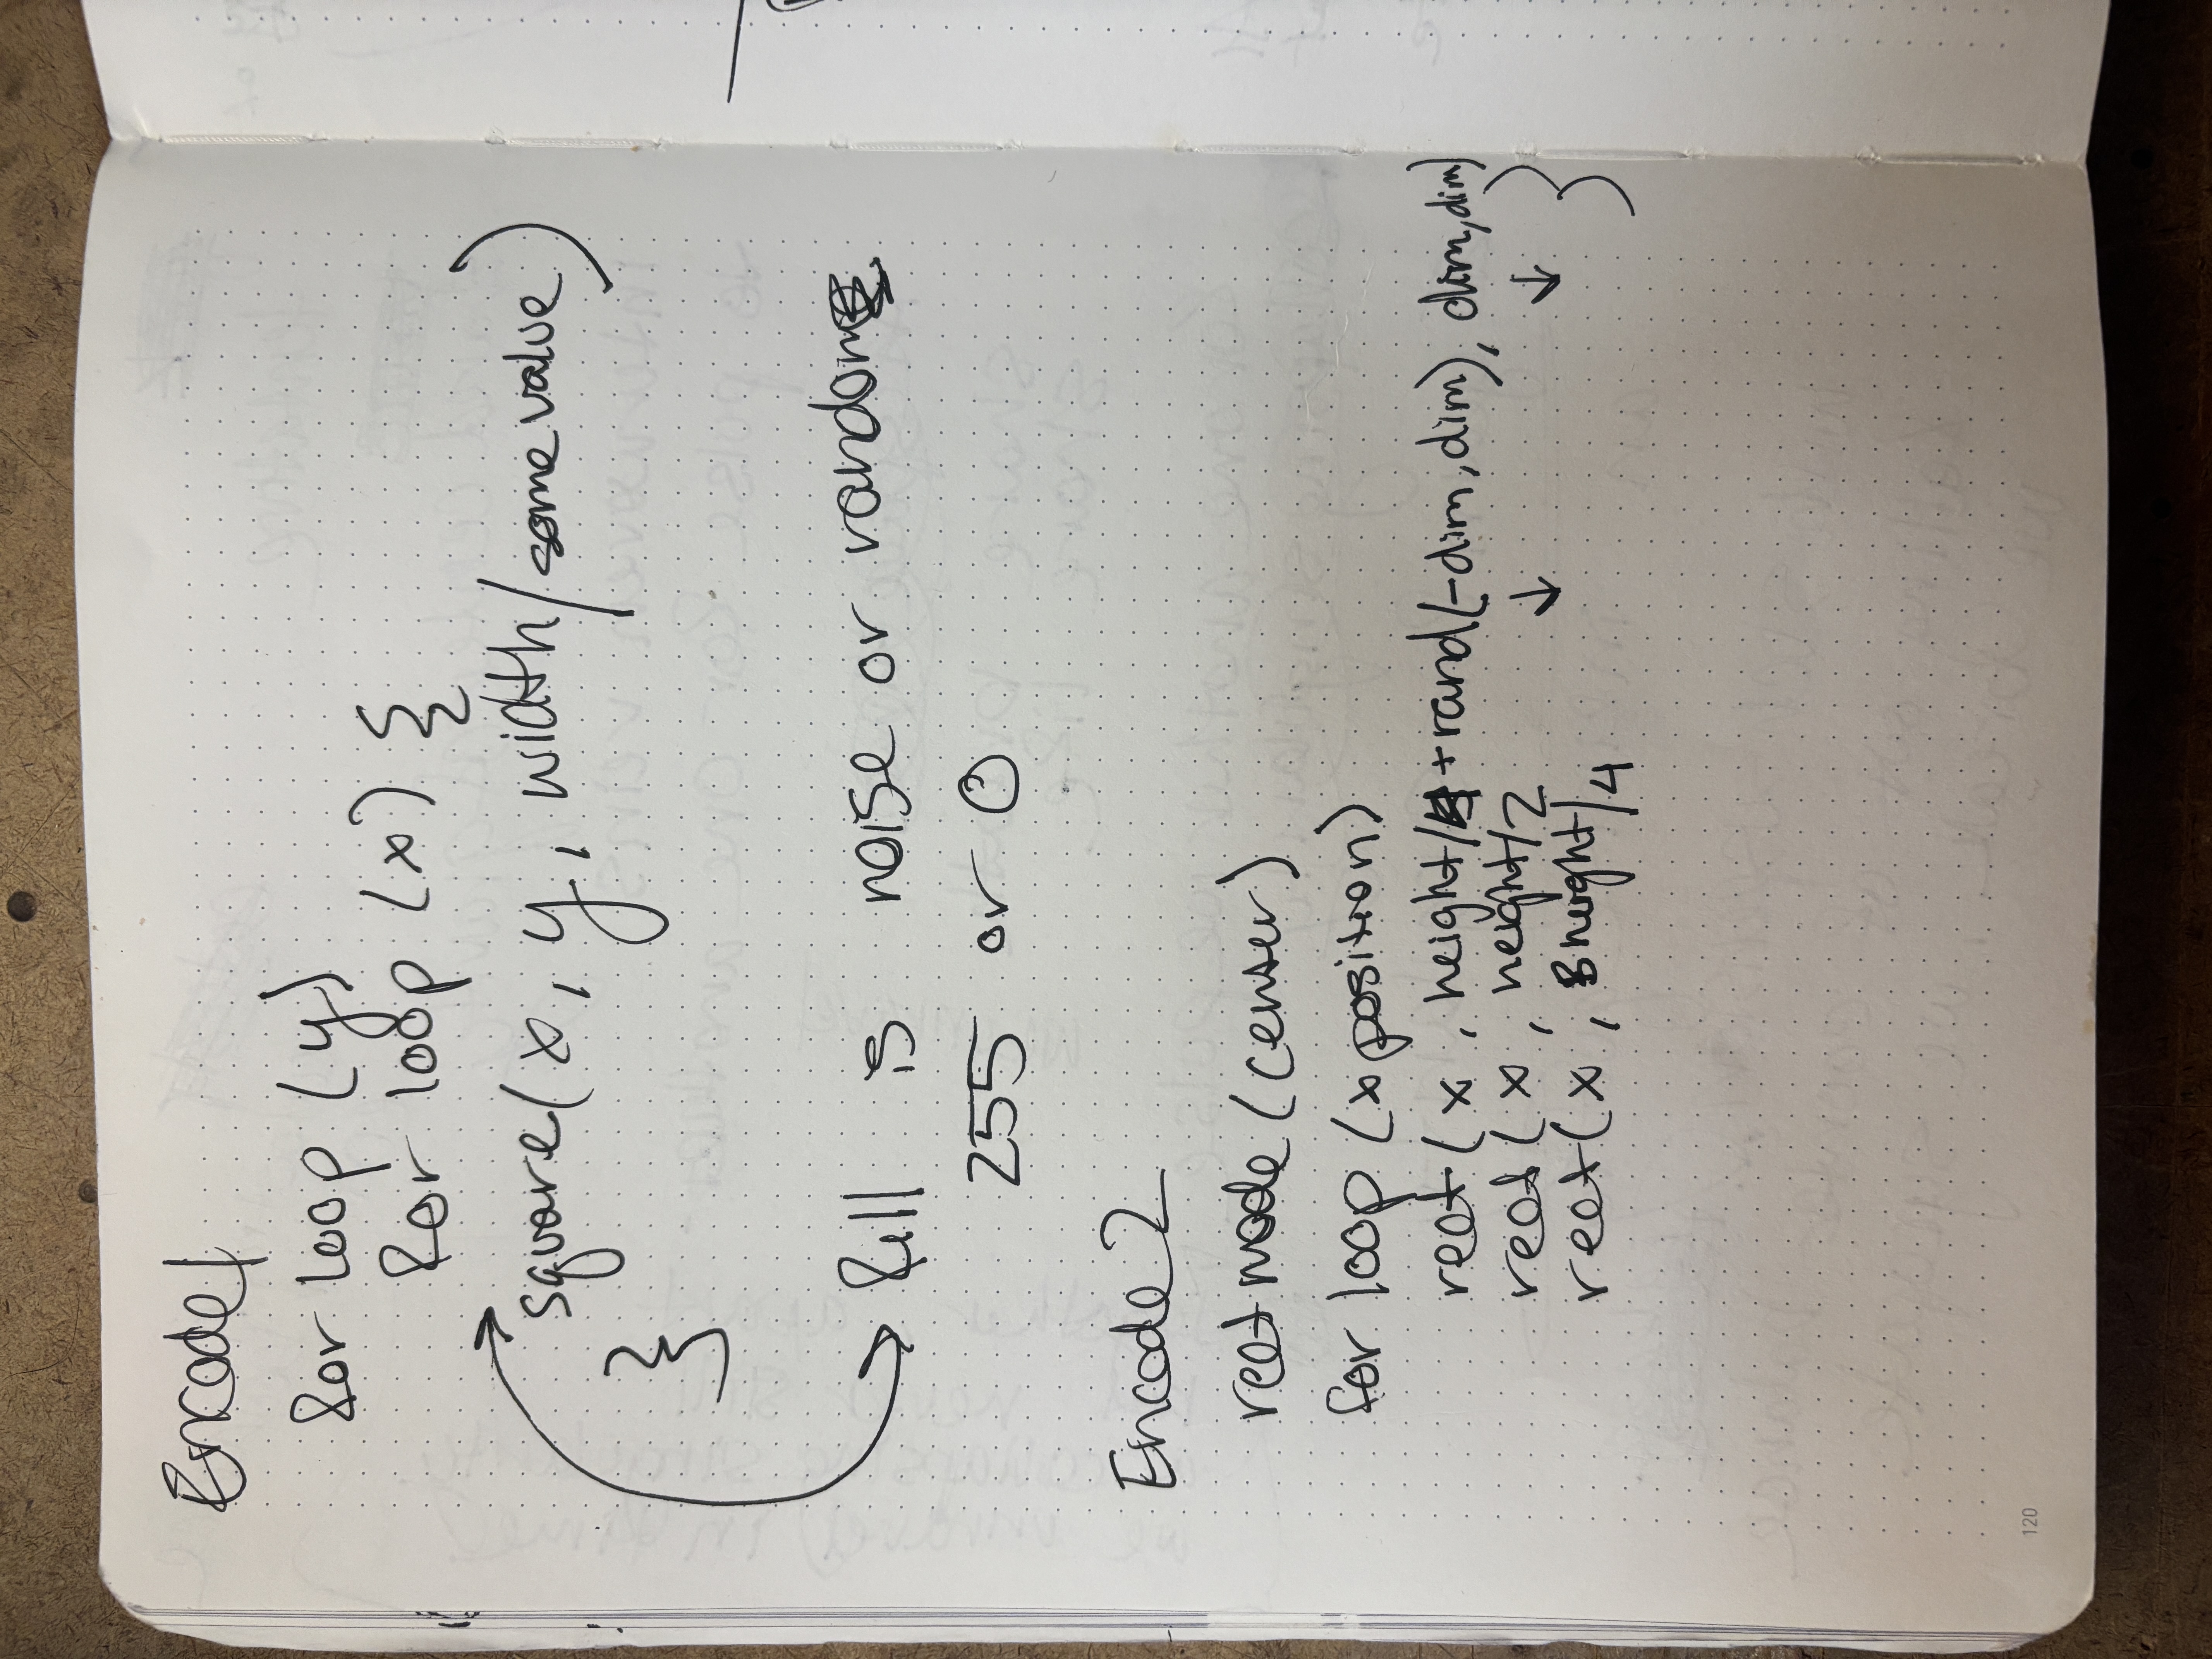 Encode 1
for loop (y)
for loop (x) {
square(x, y, width/some value)
}
fill is noise or random
255 or 0
Encode 2
rectmode (center)
for loop (x position)
rect(x, height/4 + rand(-dim, dim), dim, dim)
rect(x, height/2 ↓ ↓ )
rect(x, 3height/4 )
120